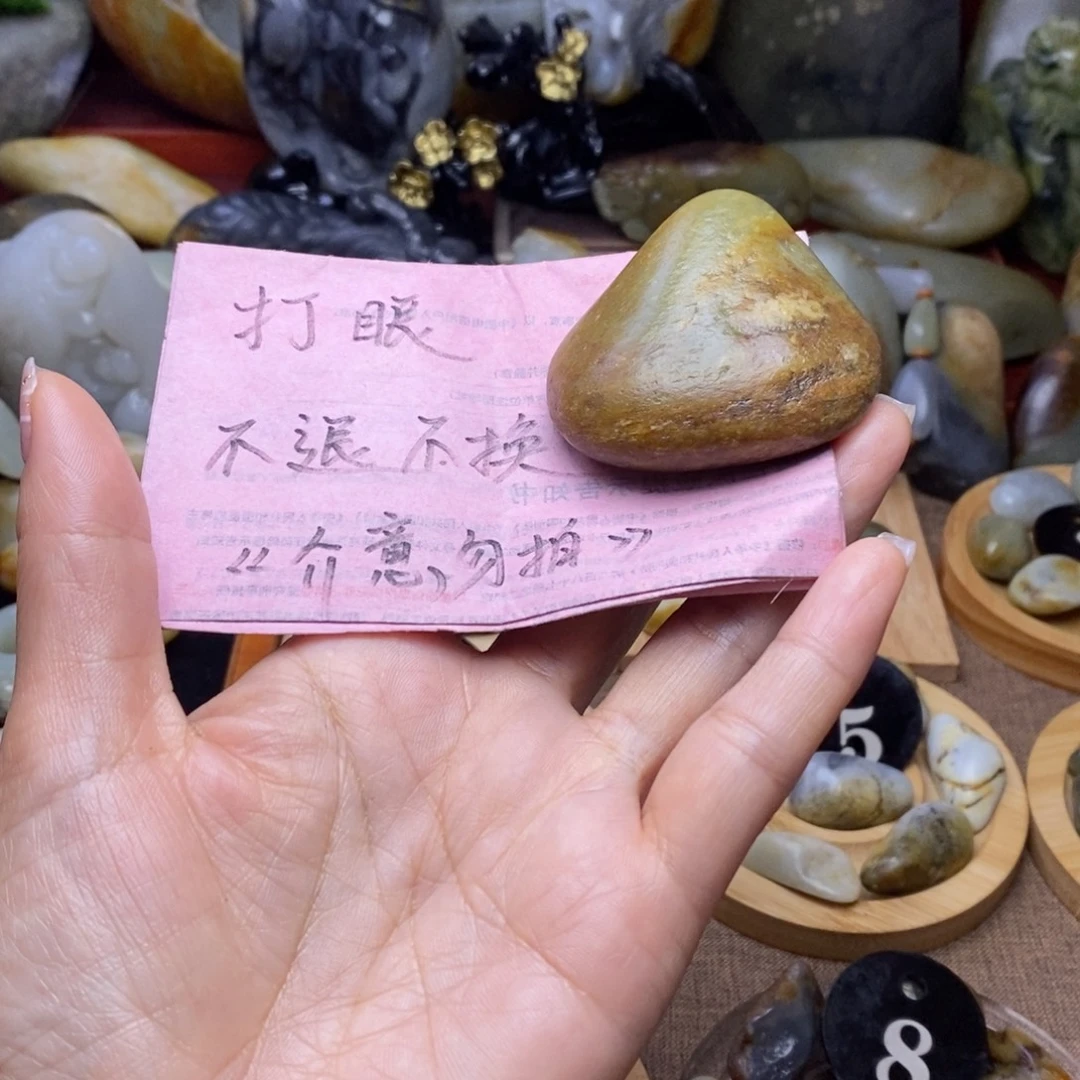 打眼
不退不换
《介意勿拍》
5
8